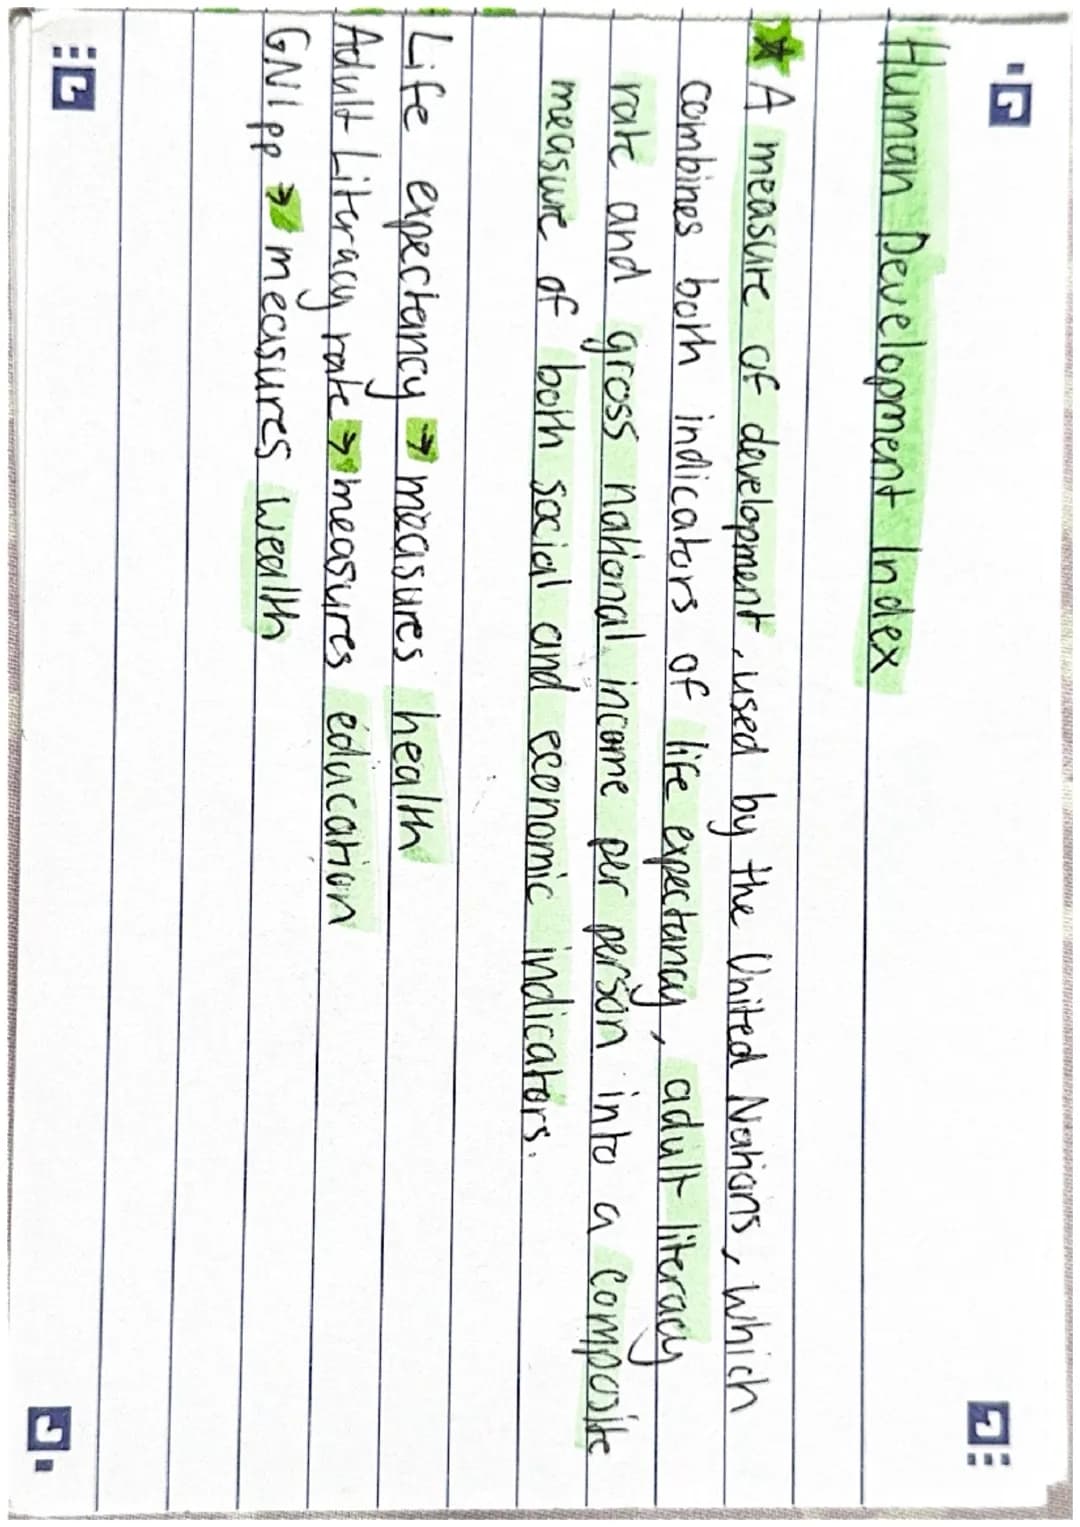 Human Development Index
A measure of development, used by the United Nations, which
combines both indicators of life expectancy, adult literacy
rate and gross national income per person into a composite
measure of both social and economic indicators.
Life expectancy → measures health
Adult Literacy rate → measures education
GNI pp → measures wealth